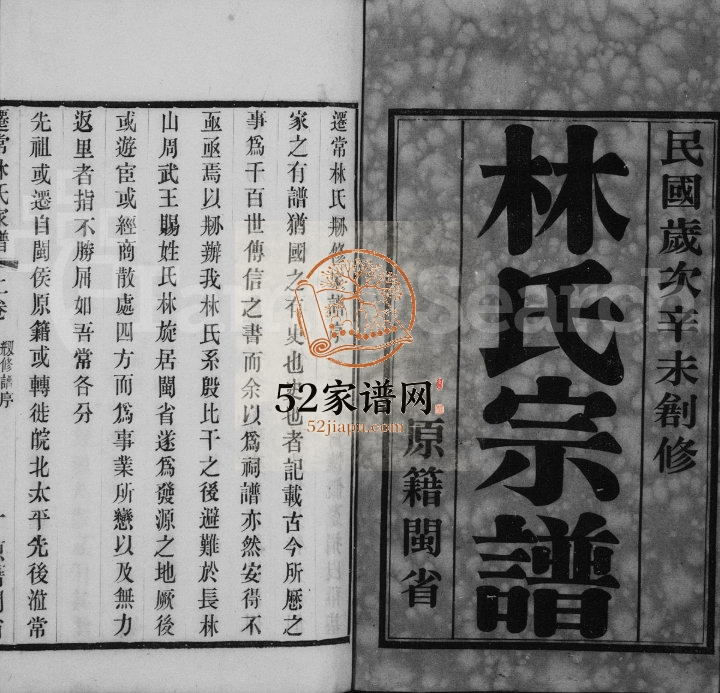 民國歲次辛未創修
林氏宗譜
原籍閩省
遷常林氏刱修
家之有譜猶國之有史也 也者記載古今所歷之
事為千百世傳信之書而余以為祠譜亦然安得不
亟亟焉以刱辦我林氏系殷比干之後避難於長林
山周武王賜姓氏林旋居閩省遂為發源之地厥後
或遊宦或經商散處四方而為事業所戀以及無力
返里者指不勝屈如吾常各分
先祖或遷自閩侯原籍或轉徙皖北太平先後涖常
遷常林氏家譜 上卷 刱修譜序
52家谱网
52jiapu.com
Search